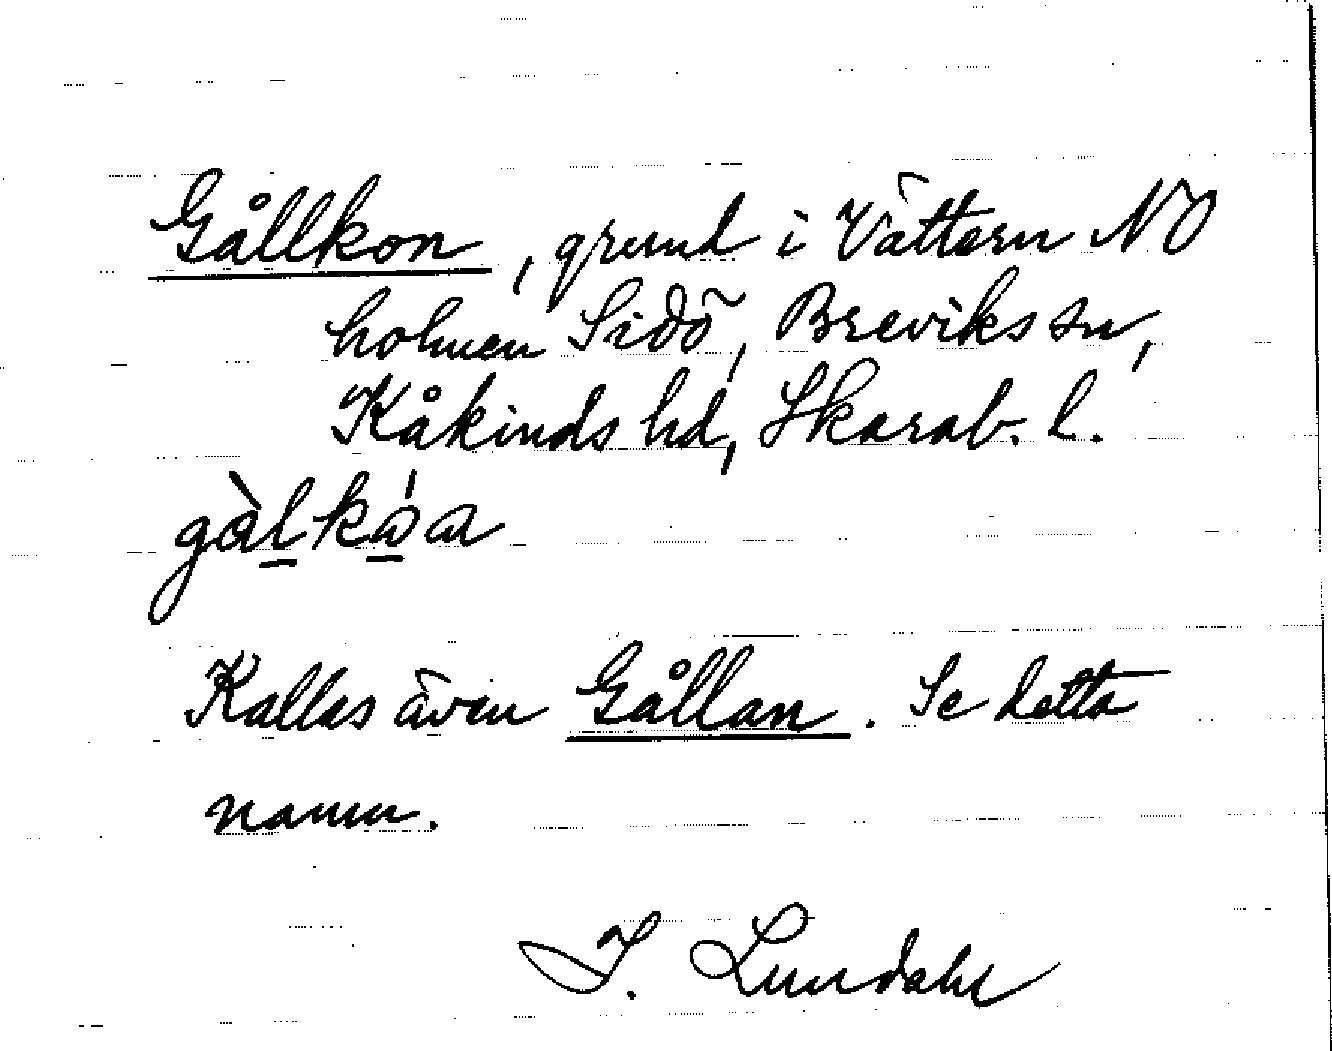 Gållkon, grund i Vättern NO
holmen Sidö, Breviks sn,
Kåkinds hd, Skarab. l.
Kallas även Gållan. Se detta
namn.
I. Lundahl